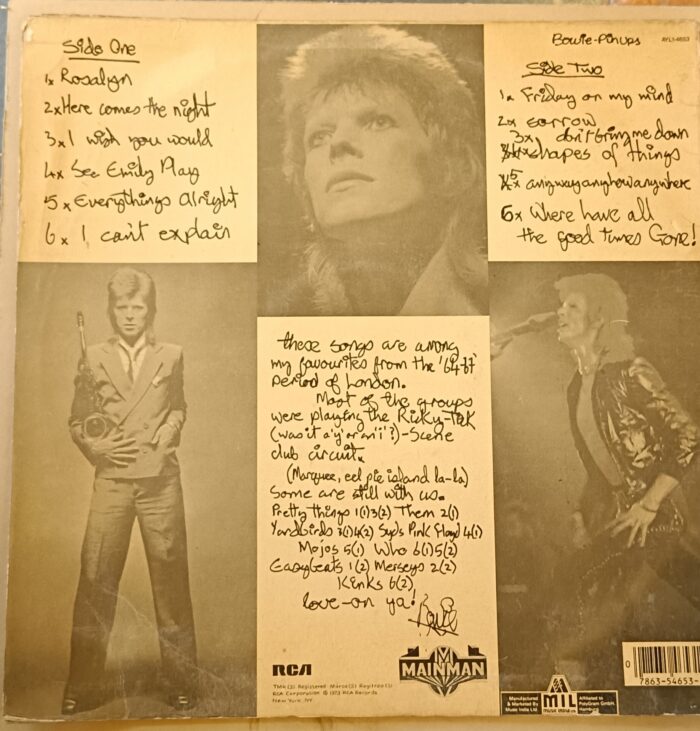 Side One
1x Rosalyn
2x Here comes the night
3x I wish you would
4x See Emily Play
5x Everythings Alright
6x I can't explain
Bowie-Pinups
AYL1-4653
Side Two
1x Friday on my mind
2x sorrow
3x don't bring me down
4x shapes of things
5x anywayanyhowanywhere
6x Where have all
the good times Gone!
these songs are among
my favourites from the '64-67'
period of London.
Most of the groups
were playing the Ricky-Tick
(was it a 'y' or an 'i'?)-Scene
club circuit.
(Marquee, eel pie island la-la)
Some are still with us.
Pretty things 1(1)3(2) Them 2(1)
Yardbirds 3(1)4(2) Syd's Pink Floyd 4(1)
Mojos 5(1) Who 6(1)5(2)
Easybeats 1(2) Merseys 2(2)
Kinks 6(2)
love-on ya!
Bowie
RCA
MAINMAN
TMK(S) Registered Marca(s) Registrada(s)
RCA Corporation © 1973 RCA Records
New York, NY
Manufactured
& Marketed By
Music India Ltd.
MIL
Affiliated to
PolyGram GmbH.
Hamburg
0 7863-54653-